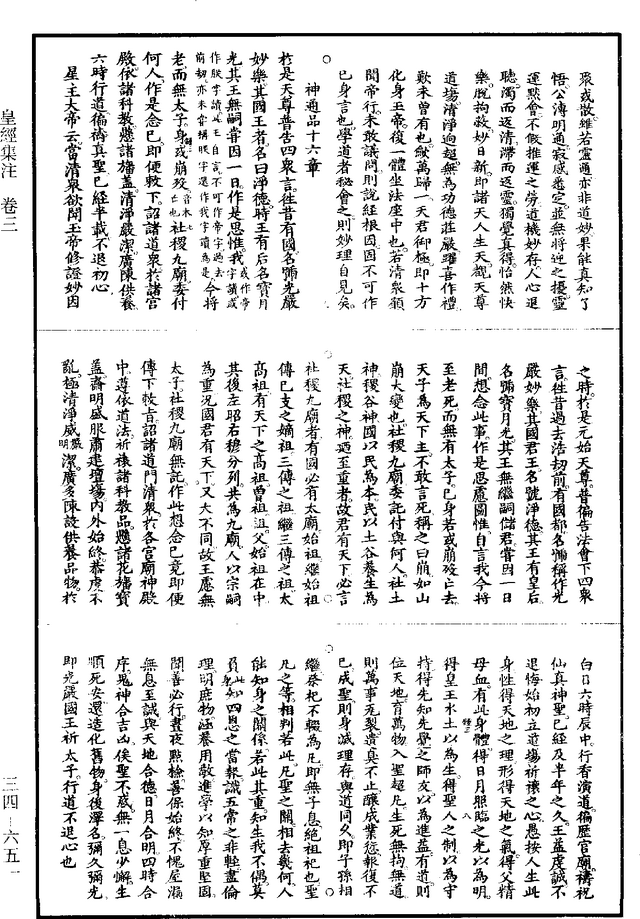 聚或散雖若靈通亦非道妙果能真知了
悟公溥明通寂感悉定並無將迎之擾靈
運黙會不假推運之勞道機妙存人心退
聽濁而返清滯而返靈獨覺真得怡然快
樂脫拘啟妙日新即諸天人生天覩天尊
道場清淨逈超無為功德莊嚴躍喜作禮
歎未曾有也㪘萬歸一天君御極即十方
化身玉帝復一體坐法座中也若清衆願
聞帝行未敢議問則說經根因固不可作
已身言也學道者秘會之則妙理自見矣
神通品十六章
於是天尊普告四衆言徃昔有國名號光嚴
妙樂其國王者名曰淨德時王有后名寶月
光其王無嗣嘗因一日作是思惟我今將
老而無太子身或崩殁社稷九廟委付
何人作是念已即便敕下詔諸道衆於諸宮
殿依諸科教懸諸旛蓋清淨嚴潔廣陳供養
六時行道徧禱真聖已經半載不退初心
星主大帝云當清衆欲聞玉帝修證妙因
之時於是元始天尊普徧告法會下四衆
言徃昔過去浩劫前有國都名號稱作光
嚴妙樂其國君王名號淨德其王有皇后
名號寶月光其王無繼嗣儲君嘗因一日
間想念此事作是思慮圖惟自言我今將
至老死而無有太子已身若或崩殁亡去
天子為天下主不敢言死稱之曰崩如山
崩大變也社稷九廟委託付與何人社土
神稷谷神國以民為本民以土谷養生為
天社稷之神過至重者故君有天下必言
社稷九廟者有國必有太廟始祖繼始祖
傳已支之嫡祖三傳之祖繼三傳之祖太
高祖有天下之高祖曽祖祖父始祖在中
其後左昭右穆分列共為九廟人以宗嗣
為重況國君有天下又大不同故王慮無
太子社稷九廟無託作此想念已竟即便
傳下敕旨詔諸道門清衆於各宮廟神殿
中遵依道法祈祿諸科教品懸諸花旛寳
蓋齋明盛服肅建壇場内外始終恭虔不
亂極清淨威嚴明潔廣多陳設供養品物於
白日六時辰中行香演道徧歴官廟禱祝
仙真神聖已經及半年之久王益虔誠不
退悔始初立道場祈禳之心愚按人生此
身性得天地之理形得天地之氣得父精
母血有此身體得日月照臨之光以為明
得皇王水土以為生得聖人之制以為守
持得先知先覺之師友以為進益有道則
位天地育萬物入聖超凡生死無拘無道
則萬事瓦裂潰真不止釀成業愆報復不
已成聖則身滅理存與道同久即子孫相
繼祭祀不輟為凡即無子息絕祖祀也聖
凡之等相判若此凡聖之關相去㡬何人
能知身之關係若此其重知生我不偶莫
負此四恩之當報識五常之非輕盡倫
理明庶物涵養用敬進學以知厚重堅固
聞善必行晝夜黙檢善保始終不愧屋漏
無息至誠與天地合德日月合明四時合
序鬼神合吉凶俟聖不惑無一息少懈生
順死安還造化舊物身後澤名彌久彌光
即光嚴國王祈太子行道不退心也
皇經集注 卷三
三四－六五一